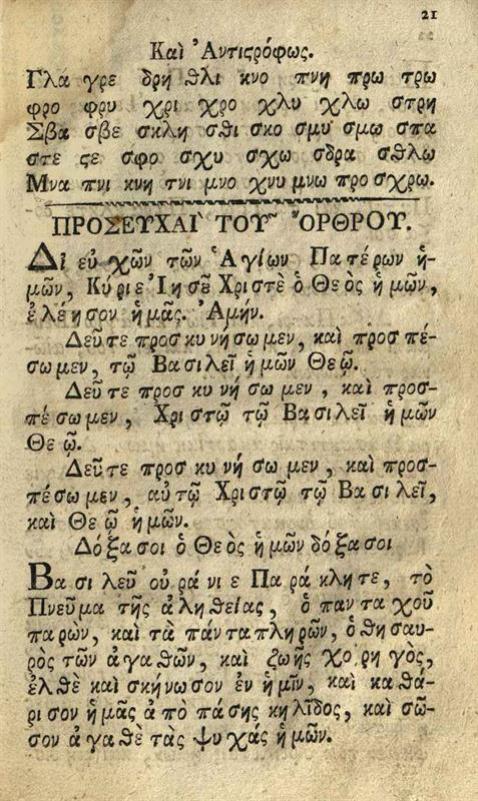 21
Καὶ Ἀντιστρόφως.
Γλα γρε δρη θλι κνο πνη πρω τρω
φρο φρυ χρι χρο χλυ χλω στρη
Σβα σβε σκλη σθι σκο σμυ σμω σπα
στε ϛε σφο σχυ σχω σδρα σθλω
Μνα πνι κνη τνι μνο χνυ μνω προ σχρω.
ΠΡΟΣΕΥΧΑΙ ΤΟΥ ὌΡΘΡΟΥ.
Δι εὐ χῶν τῶν Ἁγίων Πα τέρων ἡ-
μῶν, Κύριε Ἰησȣ͂ Χριστὲ ὁ Θεὸς ἡ μῶν,
ἐ λέ ησον ἡ μᾶς. Ἀμήν.
Δεῦτε προσ κυ νή σω μεν, καὶ προσ πέ-
σω μεν, τῷ Βα σι λεῖ ἡ μῶν Θε ῷ.
Δεῦ τε προσ κυ νή σω μεν, καὶ προσ-
πέ σω μεν, Χρι στῷ τῷ Βα σι λεῖ ἡ μῶν
Θε ῷ.
Δεῦτε προσ κυ νή σω μεν, καὶ προσ-
πέ σω μεν, αὐ τῷ Χριστῷ τῷ Βα σι λεῖ,
καὶ Θε ῷ ἡ μῶν.
Δό ξα σοι ὁ Θε ὸς ἡ μῶν δό ξα σοι
Βα σι λεῦ οὐ ρά νι ε Πα ρά κλη τε, τὸ
Πνεῦμα τῆς ἀ λη θείας, ὁ παν τα χοῦ
πα ρὼν, καὶ τὰ πάν τα πλη ρῶν, ὁ θη σαυ-
ρὸς τῶν ἀ γα θῶν, καὶ ζωῆς χο ρη γὸς,
ἐλ θὲ καὶ σκή νωσον ἐν ἡ μῖν, καὶ κα θά-
ρι σον ἡ μᾶς ἀ πὸ πά σης κη λῖδος, καὶ σῶ-
σον ἀ γα θὲ τὰς ψυ χάς ἡ μῶν.